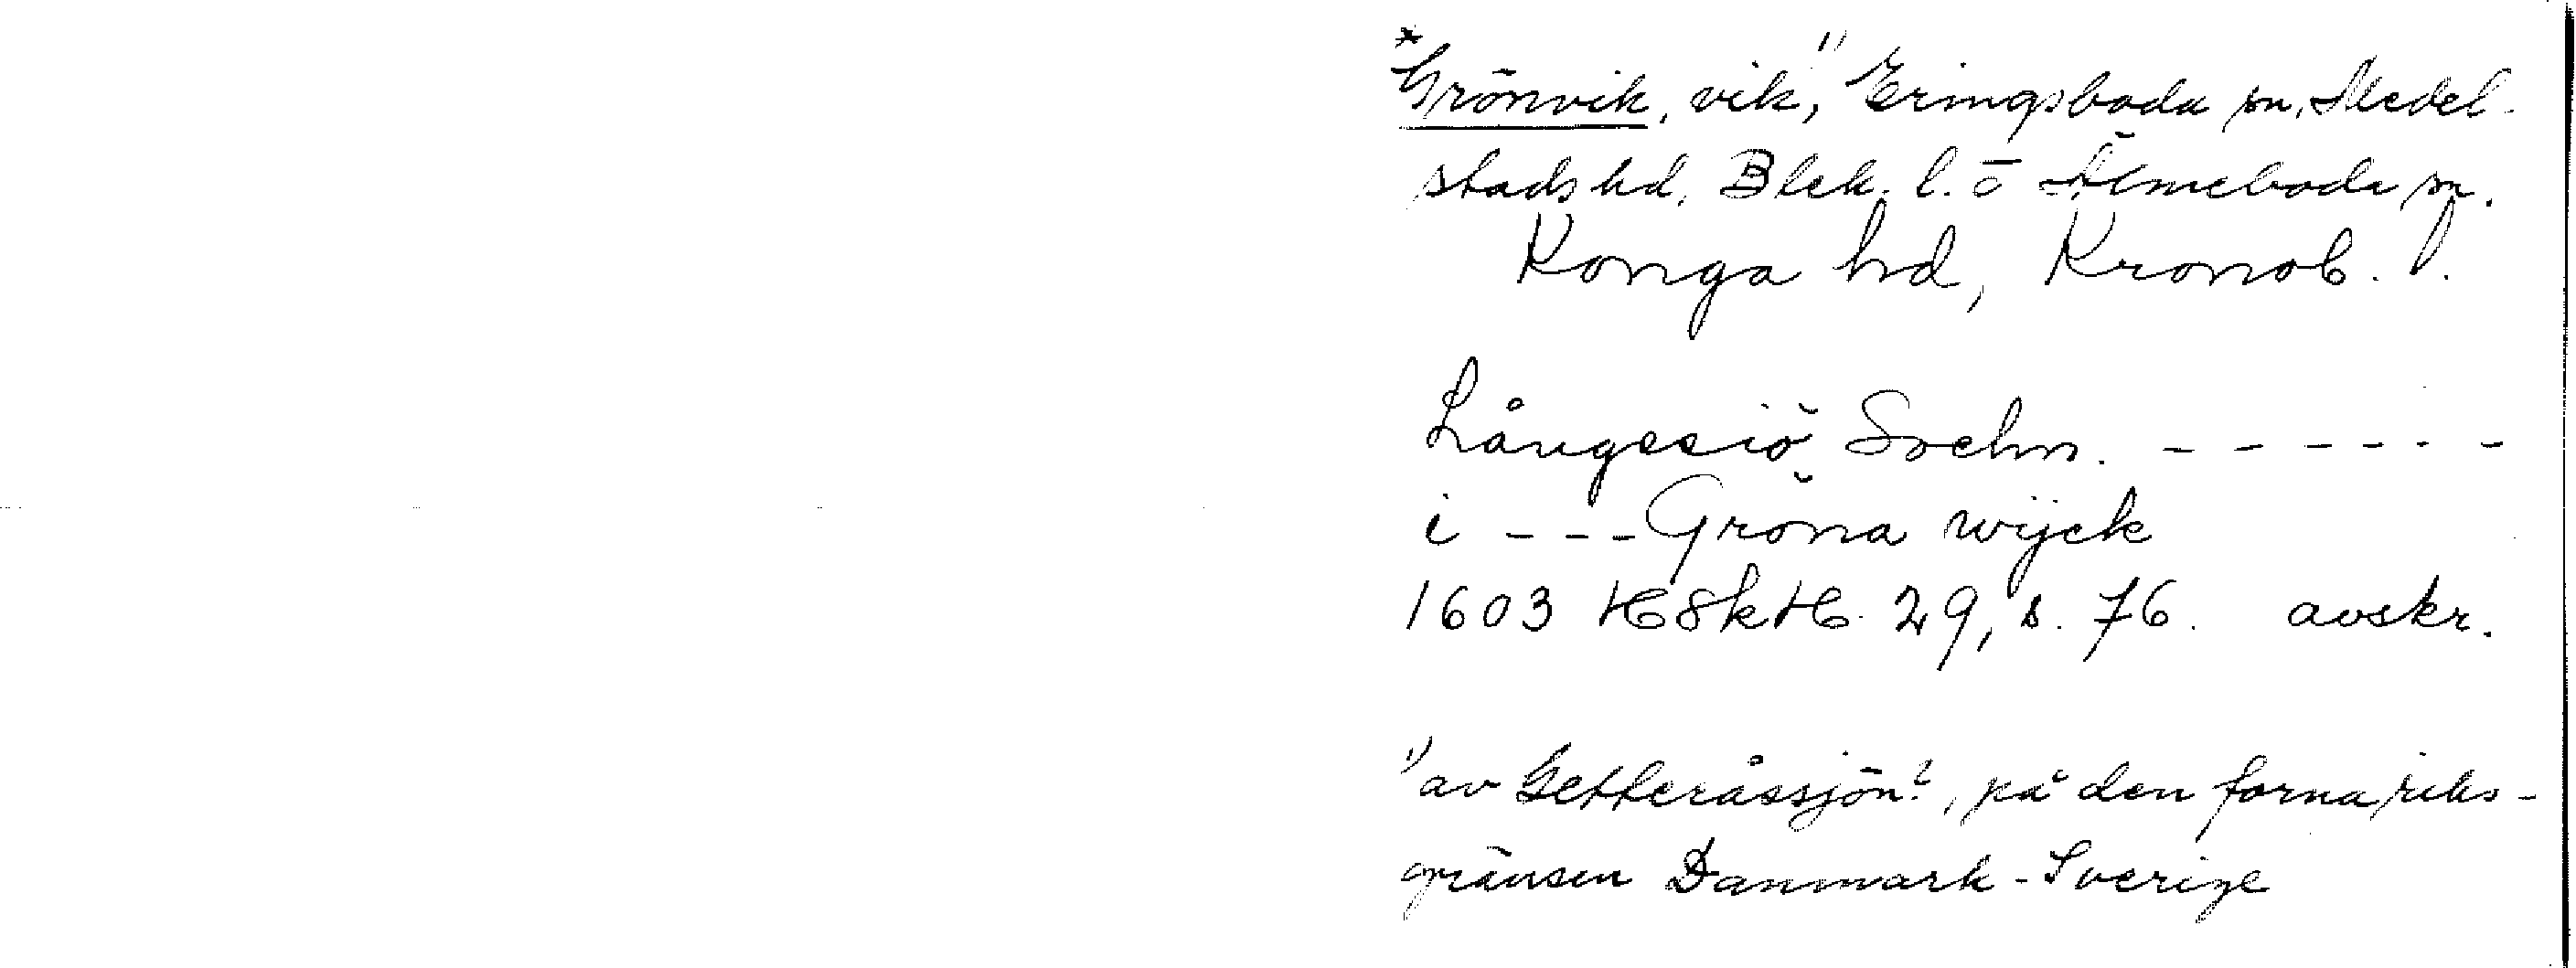 *Grönvik, vik,¹⁾ Eringsboda sn, Medel-
stads hd, Blek. l. o Älmeboda sn.
Konga hd, Kronob. l.
Långssiö Sochn. - - - - - -
i - - - Gröna wijck
1603 HSkH 29, s. 76. avskr.
¹⁾ av Getteråssjön?, på den forna riks-
gränsen Danmark - Sverige